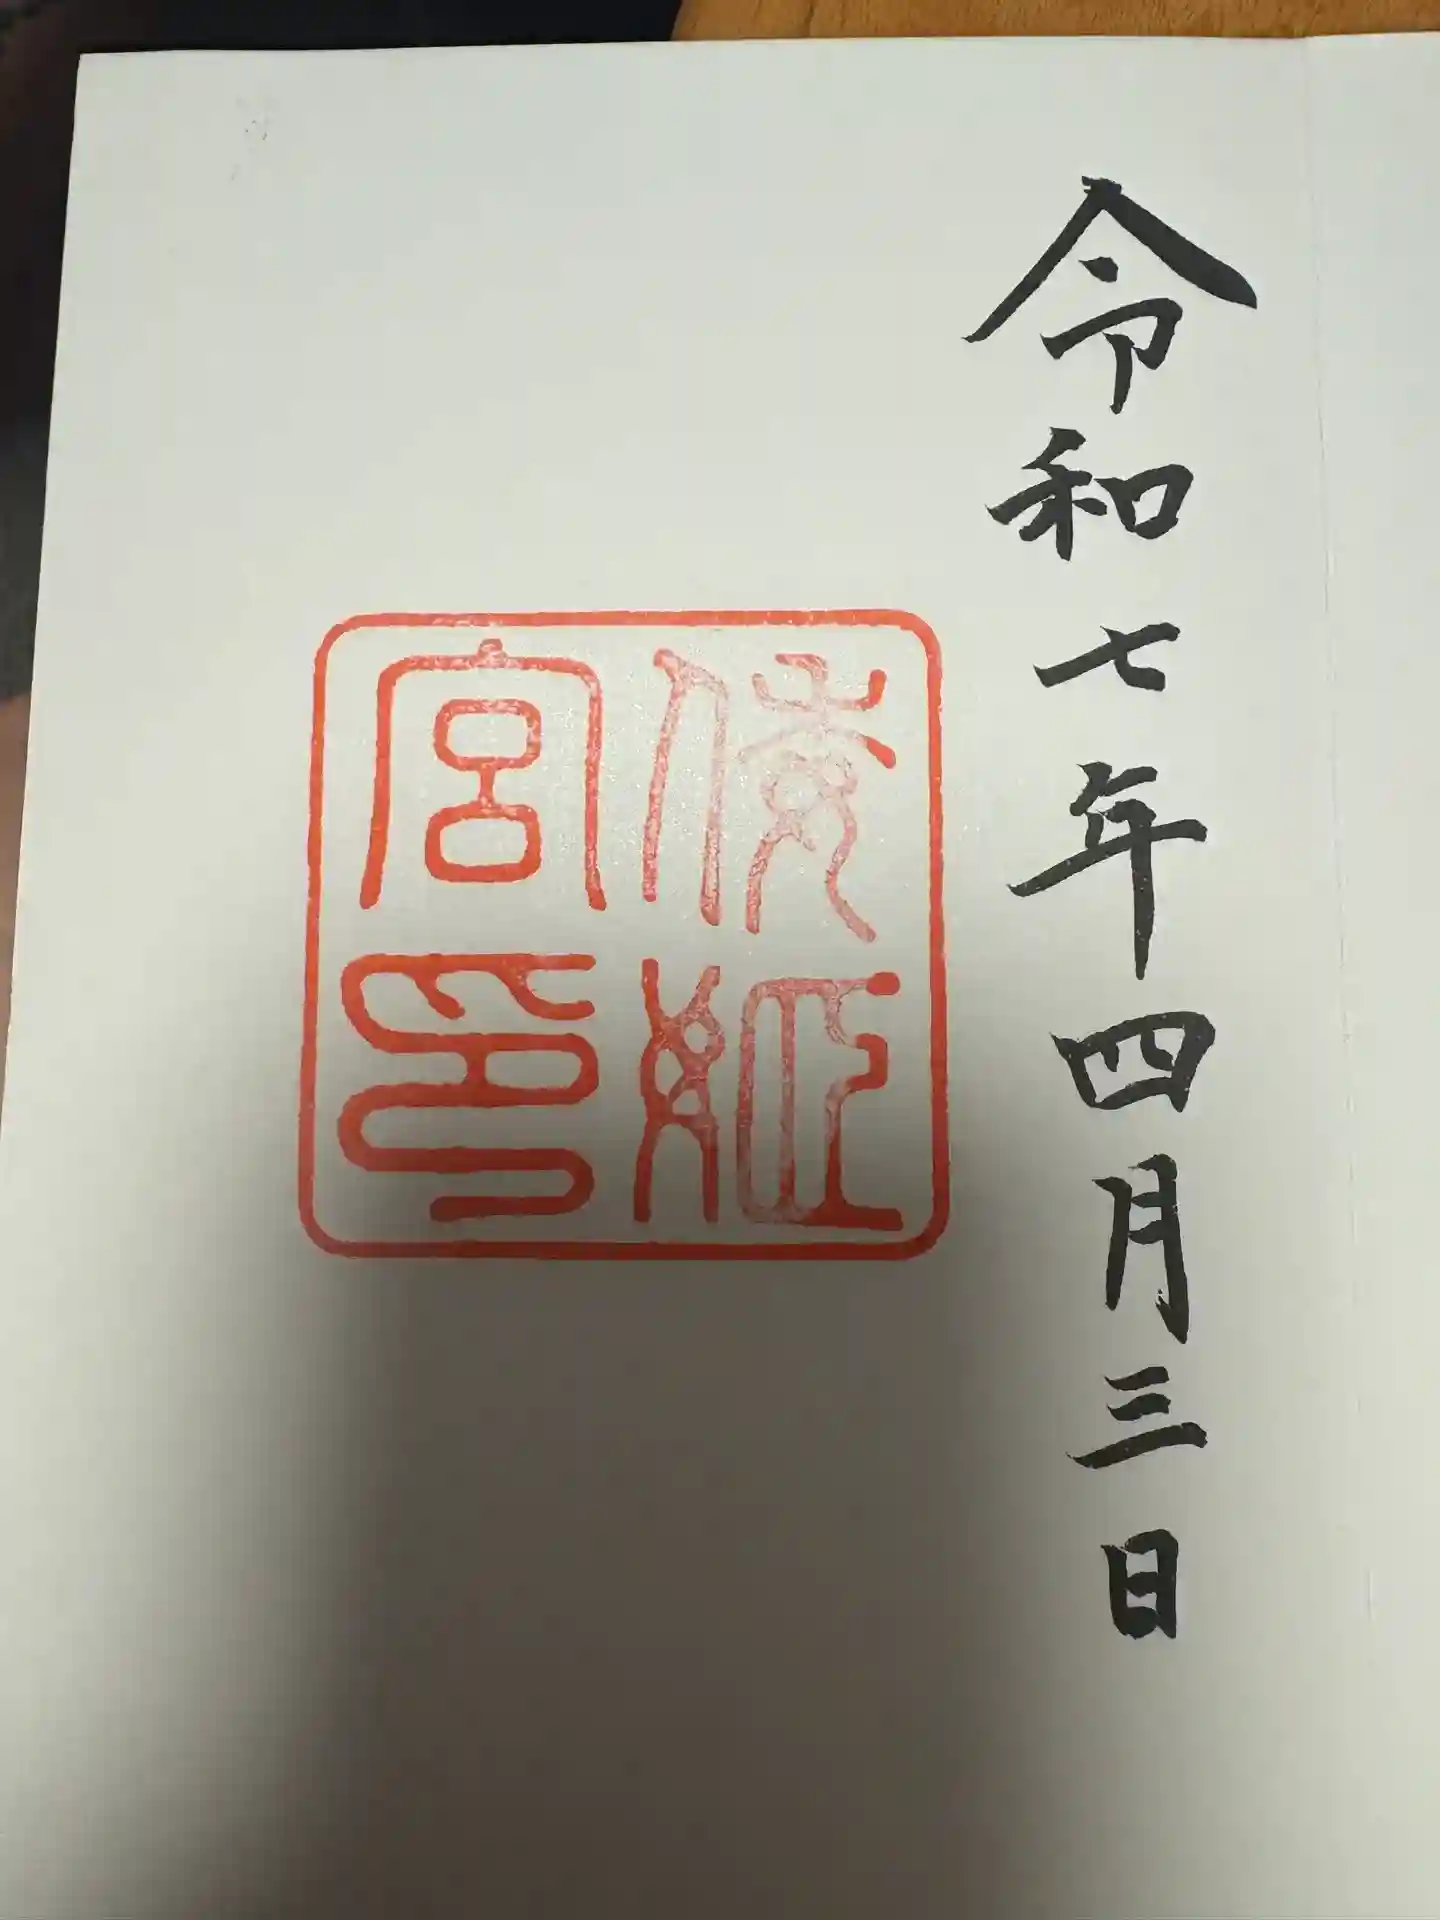 令和七年四月三日
倭姫
宮印